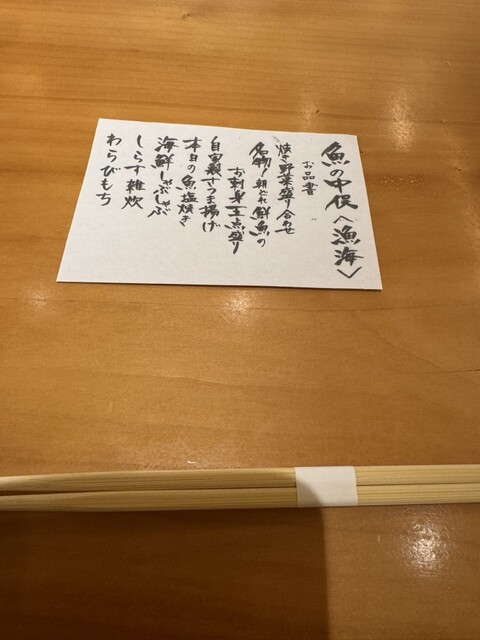 魚の中俣〈漁海〉
お品書
焼き野菜盛り合わせ
名物！朝どれ鮮魚の
お刺身五点盛り
自家製さつま揚げ
本日の魚塩焼き
海鮮しゃぶしゃぶ
しらす雑炊
わらびもち